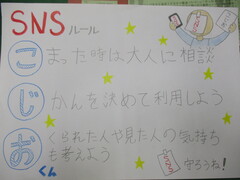 SNSルール
こまった時は大人に相談
じかんを決めて利用しよう
おくられた人や見た人の気持ち
も考えよう
くん
守ろうね!